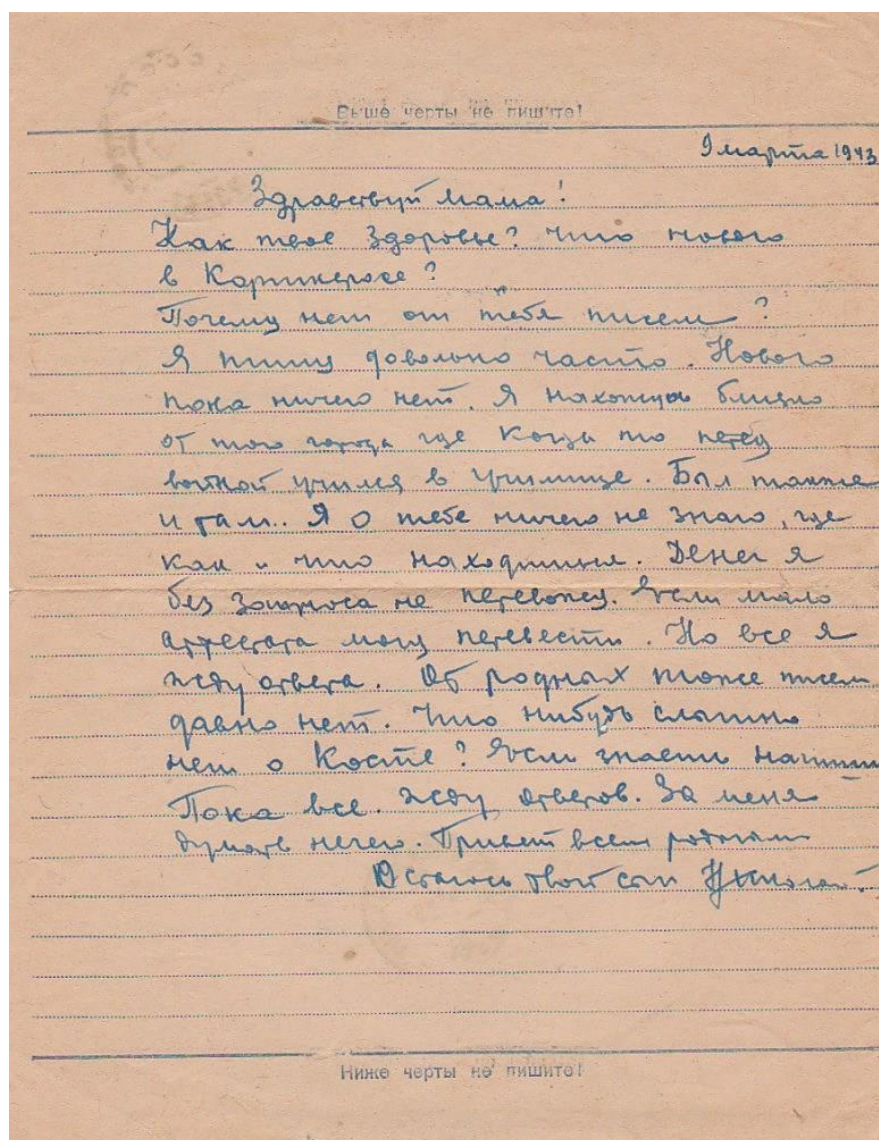 Выше черты не пишите!
9 марта 1943
Здравствуй мама!
Как твое здоровье? Что нового
в Корткеросе?
Почему нет от тебя писем?
Я пишу довольно часто. Нового
пока ничего нет. Я нахожусь близко
от того города где когда то перед
войной учился в училище. Был также
и там.. Я о тебе ничего не знаю, где
как и что находишься. Денег я
без запроса не перевожу. Если мало
аттестата могу перевести. Но все я
жду ответа. От родных тоже писем
давно нет. Что нибудь слышно
нет о Косте? Если знаешь напиши
Пока все. Жду ответов. За меня
думать нечего. Привет всем родным
Остаюсь твой сын Николай.
Ниже черты не пишите!